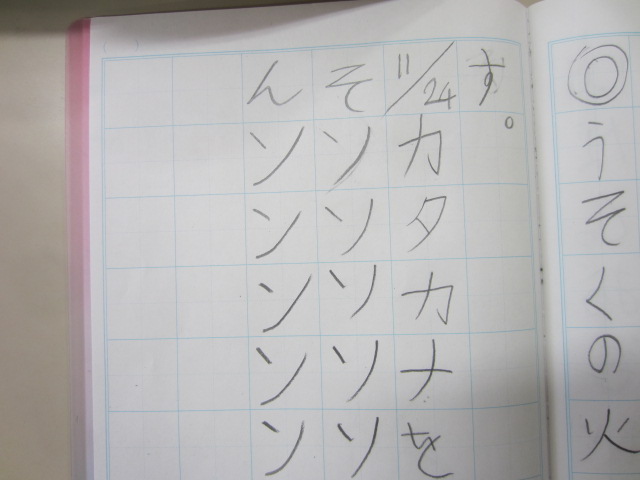 ◎うそくの火
す。
11/24カタカナを
そソソソソソ
んンンンンン